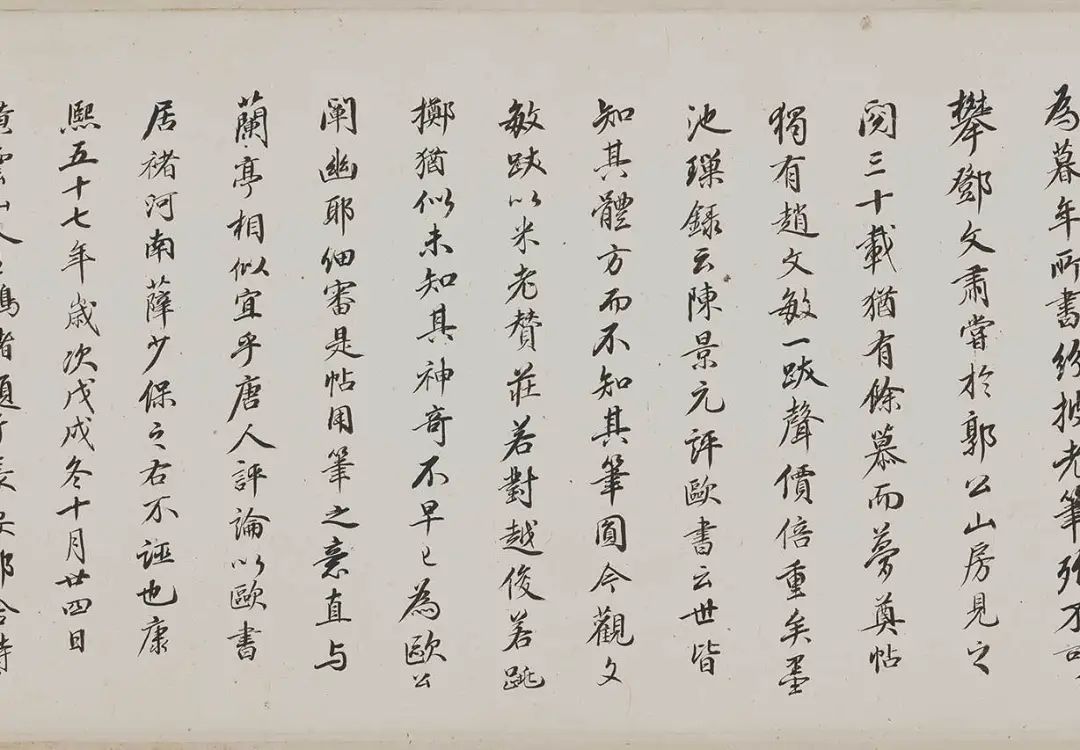 為暮年所書紛披老筆殆不可
攀鄧文肅嘗於郭公山房見之
閱三十載猶有餘慕而夢奠帖
獨有趙文敏一跋聲價倍重矣墨
池璅錄云陳景元評歐書云世皆
知其體方而不知其筆圓今觀文
敏跋以米老贊莊若對越俊若跳
擲猶似未知其神奇不早已為歐公
闡幽耶細審是帖用筆之意直与
蘭亭相似宜乎唐人評論以歐書
居褚河南薛少保之右不誣也康
熙五十七年歲次戊戌冬十月廿四日